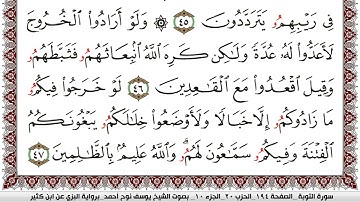 فِى رَيْبِهِمُۥ يَتَرَدَّدُونَ ۝٤٥ ۞ وَلَوْ أَرَادُوا۟ ٱلْخُرُوجَ
لَأَعَدُّوا۟ لَهُۥ عُدَّةً وَلَٰكِن كَرِهَ ٱللَّهُ ٱنۢبِعَاثَهُمُۥ فَثَبَّطَهُمُۥ
وَقِيلَ ٱقْعُدُوا۟ مَعَ ٱلْقَٰعِدِينَ ۝٤٦ لَوْ خَرَجُوا۟ فِيكُمُۥ
مَا زَادُوكُمُۥ إِلَّا خَبَالًا وَلَأَوْضَعُوا۟ خِلَٰلَكُمُۥ يَبْغُونَكُمُ
ٱلْفِتْنَةَ وَفِيكُمُۥ سَمَّٰعُونَ لَهُمُۥ وَٱللَّهُ عَلِيمٌۢ بِٱلظَّٰلِمِينَ ۝٤٧
سورة التوبة_ الصفحة ١٩٤_ الحزب ٢٠_ الجزء ١٠_ بصوت الشيخ يوسف نوح أحمد_ برواية البزي عن ابن كثير